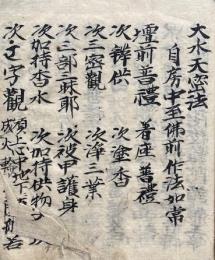 大水天密法
自房中至佛前作法如常
壇前普禮　着座普禮
次辨供　次塗香
次三密觀　次淨三業
次三部三昧耶　次被甲護身
次加持香水　次加持供物
次文字觀　頂上心中地下
成火輪